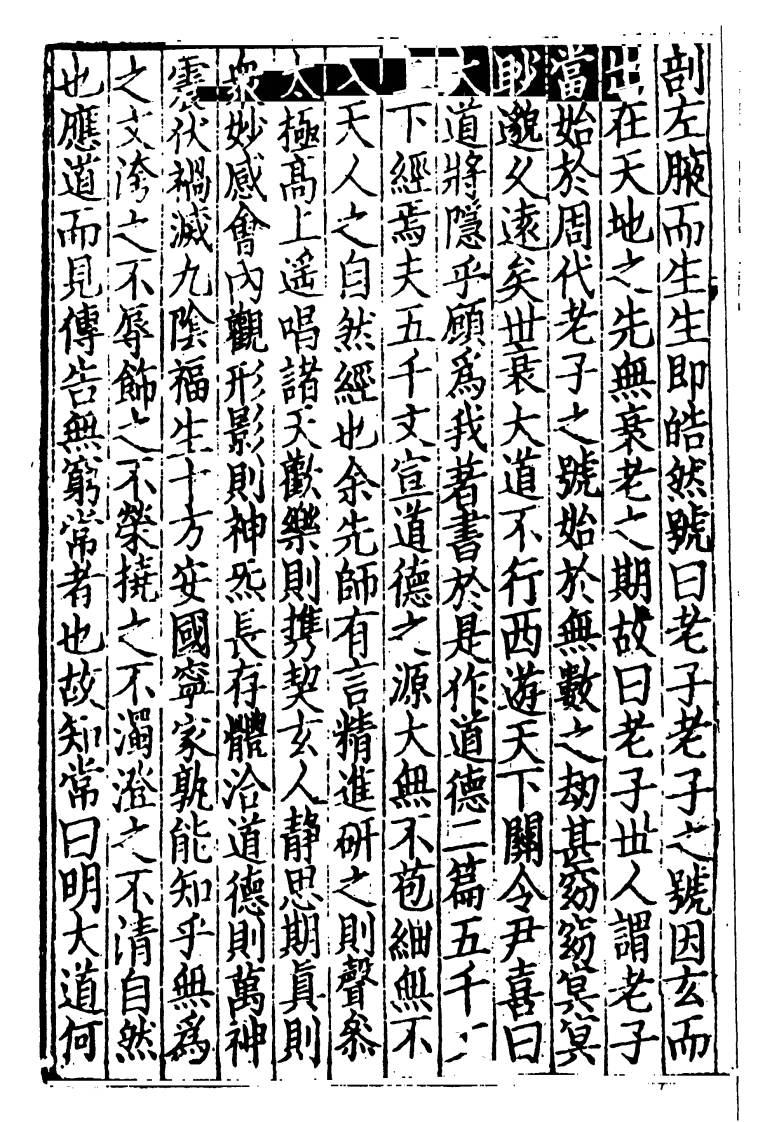 剖左腋而生生即皓然號曰老子老子之號因玄而
出在天地之先無衰老之期故曰老子丗人謂老子
當始於周代老子之號始於無數之劫甚窈窈冥冥
眇邈乆逺矣世衰大道不行西遊天下關令尹喜曰
大道將隱乎願爲我著書於是作道德二篇五千
下經焉夫五千文宣道德之源大無不苞細無不
入天人之自然經也余先師有言精進研之則聲叅
太極髙上遥唱諸天歡樂則携契玄人静思期真則
衆妙感會内觀形影則神炁長存體洽道德則萬神
震伏禍滅九隂福生十方安國寧家孰能知乎無爲
之文㳻之不辱飾之不榮撓之不濁澄之不清自然
也應道而見傳告無窮常者也故知常曰明大道何